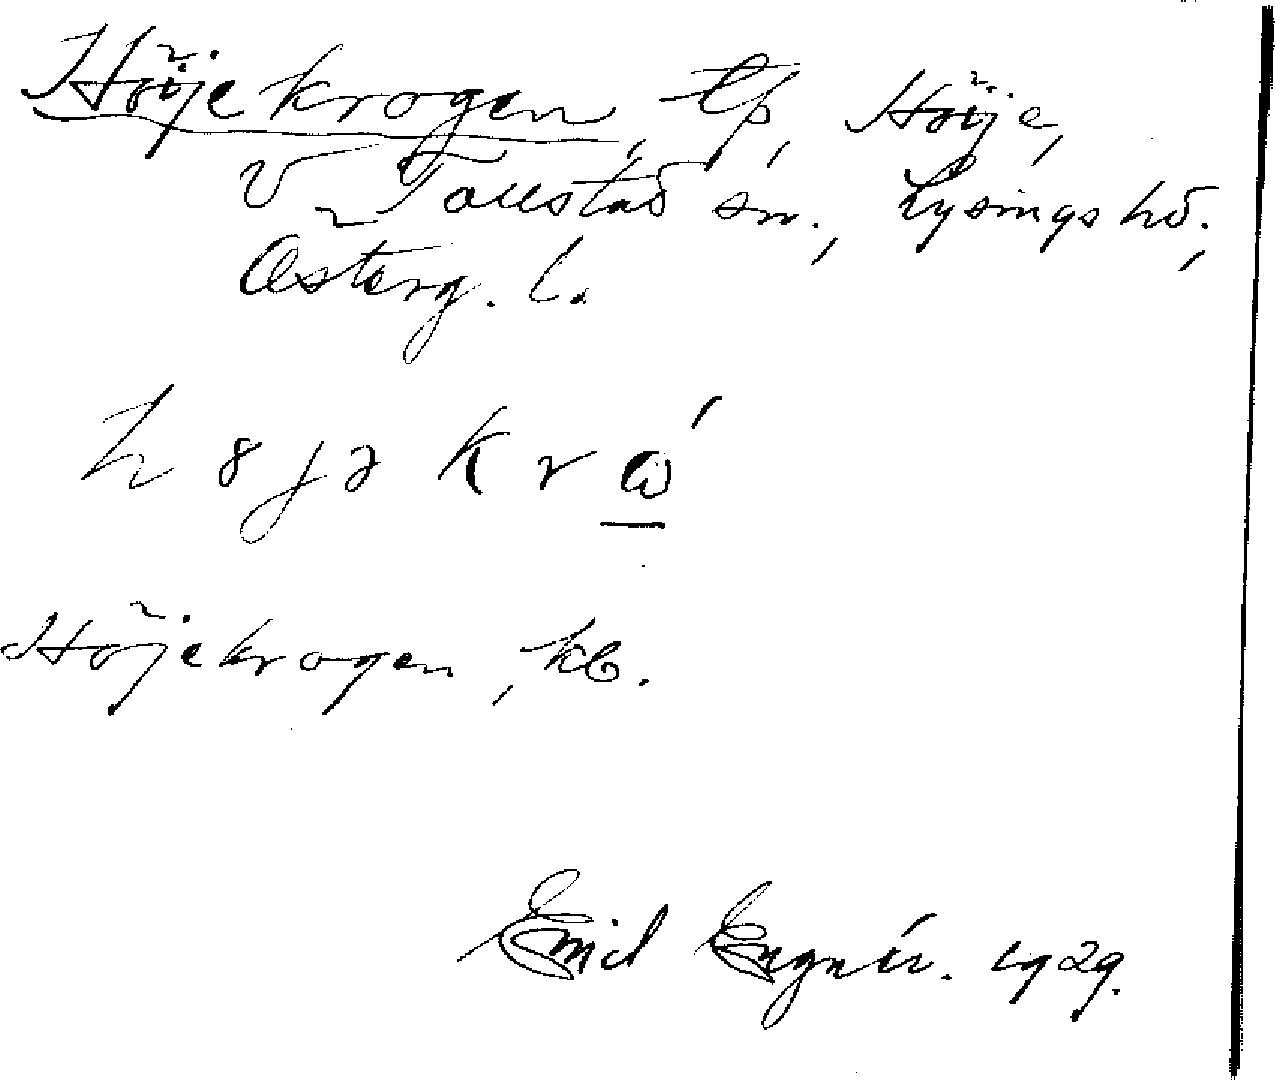 Höjekrogen, tp, Höje,
V. Tollstad sn., Lysings hd.,
Österg. l.
Höjekrogen, kb.
Emil Engnér. 1929.